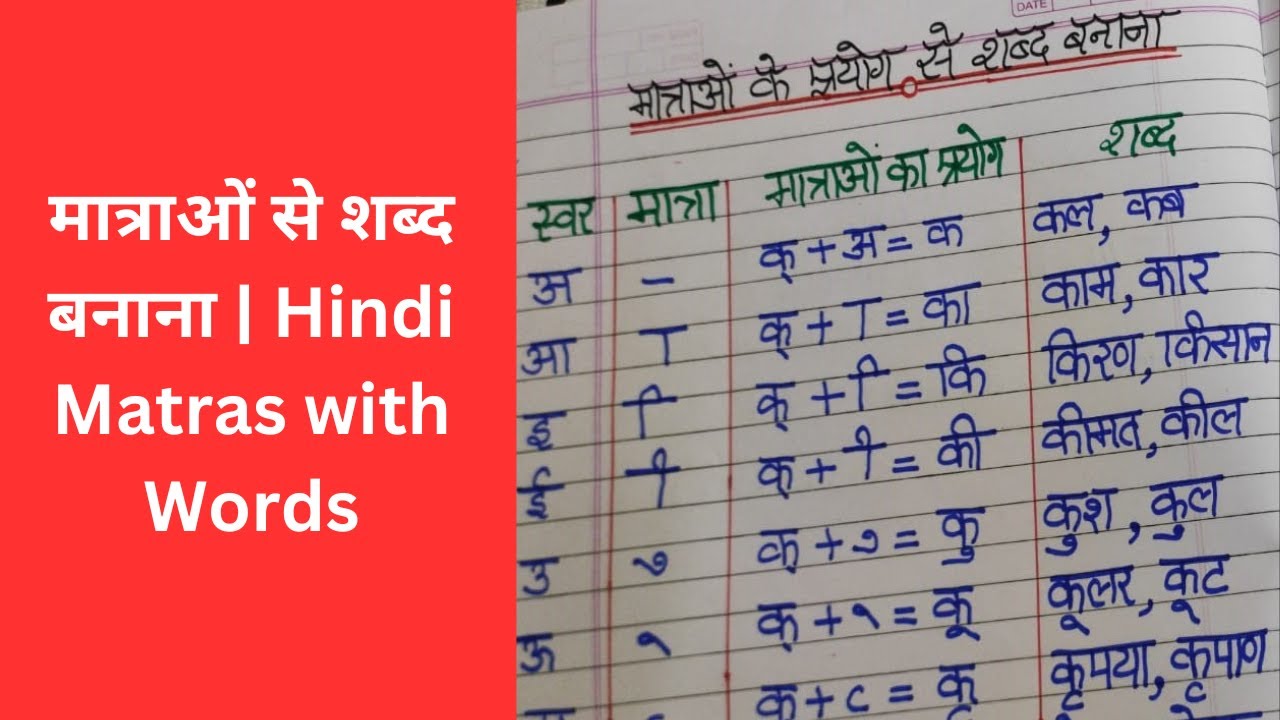 मात्राओं से शब्द
बनाना | Hindi
Matras with
Words
DATE
मात्राओं के प्रयोग से शब्द बनाना
स्वर मात्रा मात्राओं का प्रयोग शब्द
अ - क् + अ = क कल, कब
आ ा क् + ा = का काम, कार
इ ि क् + ि = कि किरण, किसान
ई ी क् + ी = की कीमत, कील
उ ु क् + ु = कु कुश, कुल
ऊ ू क् + ू = कू कूलर, कूट
क् + ृ = कृ कृपया, कृपाण